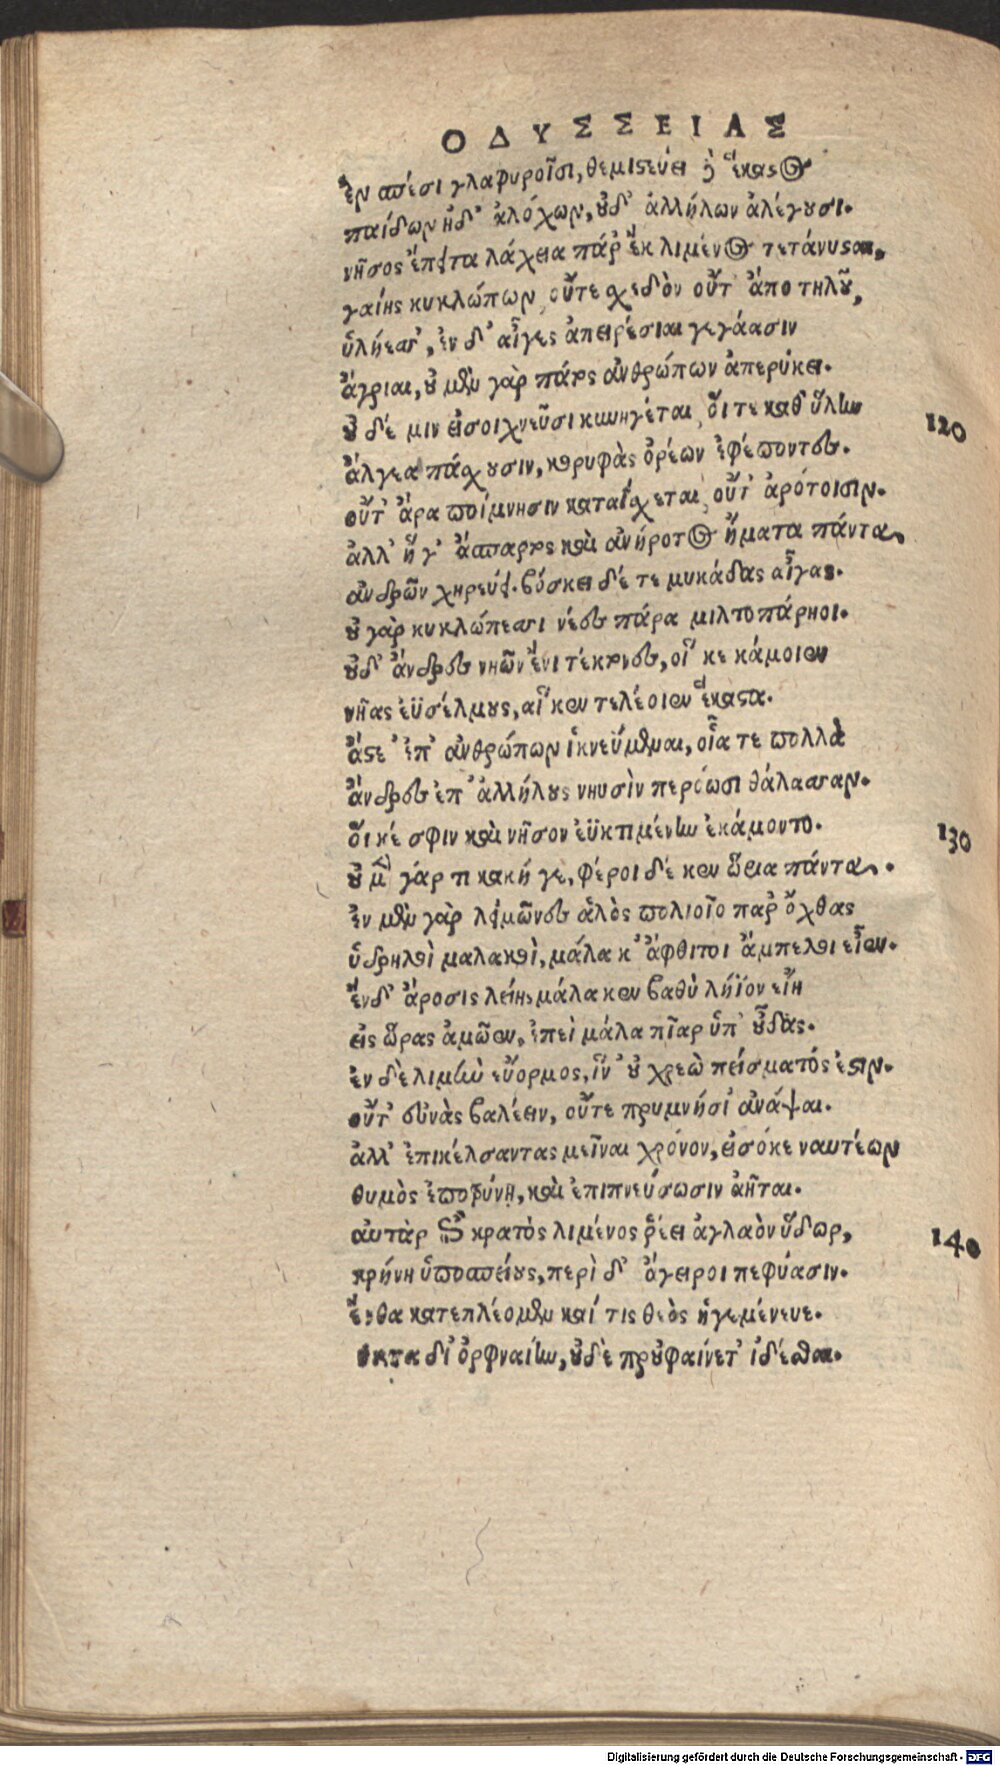 ΟΔΥΣΣΕΙΑΣ
ἐν σπέσι γλαφυροῖσι, θεμιστεύει δὲ ἕκαστος
παίδων ἠδ' ἀλόχων, οὐδ' ἀλλήλων ἀλέγουσι.
νῆσος ἔπειτα λάχεια πάρ ἐκ λιμένος τετάνυσται,
γαίης κυκλώπων, οὔτε σχεδὸν οὔτ' ἄπο τηλοῦ,
ὑλήεσσ', ἐν δ' αἶγες ἀπειρέσιαι γεγάασιν
ἄγριαι, οὐ μὲν γὰρ πάτος ἀνθρώπων ἀπερύκει.
οὐδέ μιν εἰσοιχνεῦσι κυνηγέται, οἵ τε καθ' ὕλην
120
ἄλγεα πάσχουσιν, κορυφὰς ὀρέων ἐφέποντες.
οὔτ' ἄρα ποίμνησιν καταΐσχεται, οὔτ' ἀρότοισιν.
ἀλλ' ἥ γ' ἄσπαρτος καὶ ἀνήροτος ἤματα πάντα,
ἀνδρῶν χηρεύει. βόσκει δέ τε μυκάδας αἶγας.
οὐ γὰρ κυκλώπεσσι νέες πάρα μιλτοπάρηοι.
οὐδ' ἄνδρες νηῶν ἔνι τέκτονες, οἵ κε κάμοιεν
νῆας ἐϋσέλμους, αἵ κεν τελέοιεν ἕκαστα.
ἄστε' ἐπ' ἀνθρώπων ἱκνεύμεναι, οἷά τε πολλὰ
ἄνδρες ἐπ' ἀλλήλους νηυσὶν περόωσι θάλασσαν.
οἵ κέ σφιν καὶ νῆσον ἐϋκτιμένην ἐκάμοντο.
130
οὐ μὲν γάρ τι κακή γε, φέροι δέ κεν ὥρια πάντα.
ἐν μὲν γὰρ λειμῶνες ἁλὸς πολιοῖο παρ' ὄχθας
ὑδρηλοὶ μαλακοὶ, μάλα κ' ἄφθιτοι ἄμπελοι εἶεν.
ἐν δ' ἄροσις λείη, μάλα κεν βαθὺ λήϊον εἴη
εἰς ὥρας ἀμῷεν, ἐπεὶ μάλα πῖαρ ὑπ' οὖδας.
ἐν δὲ λιμὴν εὔορμος, ἵν' οὐ χρεὼ πείσματός ἐστιν.
οὔτ' εὐνὰς βαλέειν, οὔτε πρυμνήσι' ἀνάψαι.
ἀλλ' ἐπικέλσαντας μεῖναι χρόνον, εἰσόκε ναυτέων
θυμὸς ἐποτρύνῃ, καὶ ἐπιπνεύσωσιν ἀῆται.
αὐτὰρ ἐπὶ κρατὸς λιμένος ῥέει ἀγλαὸν ὕδωρ,
140
κρήνη ὑπὸ σπείους, περὶ δ' ἄγειροι πεφύασιν.
ἔνθα κατεπλέομεν καί τις θεὸς ἡγεμόνευε.
νύκτα δι' ὀρφναίην, οὐδὲ προὐφαίνετ' ἰδέσθαι.
Digitalisierung gefördert durch die Deutsche Forschungsgemeinschaft - DFG